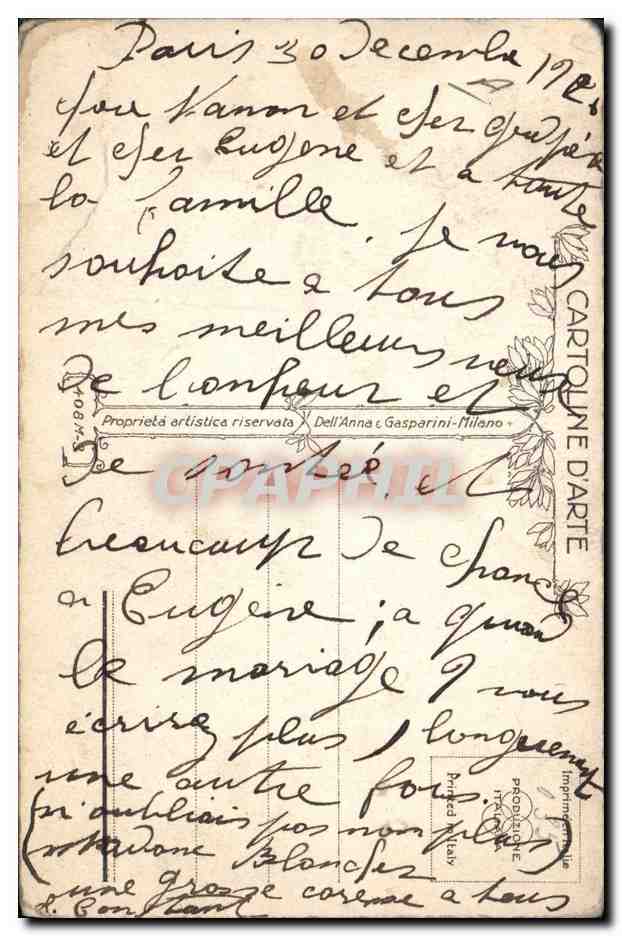 Paris 30 Decembre 192
et cher
et cher Eugene et a toute
la famille, je vous
souhaite a tous
mes meilleurs veux
de bonheur et
Proprietá artistica riservata Dell'Anna & Gasparini-Milano
de santée et
beaucoup de chance
a Eugène; a quan
le mariage J vous
écrire plus longuement
une autre fois.
(n'oubliais pas non plus)
(madame Blanche
une grosse caresse a tous
Constant
CARTOLINE D'ARTE
408 M-
Imprimé Italie
PRODUZIONE
ITALIANA
Printed in Italy
CPAPHIL